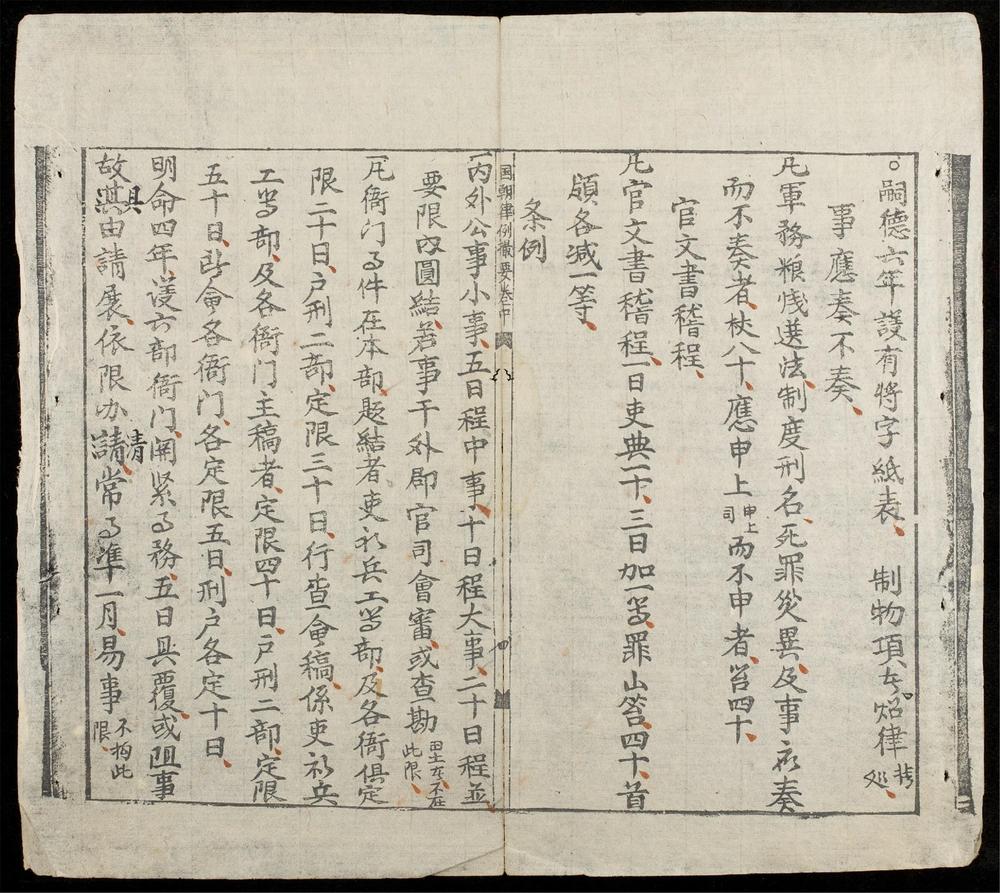 。嗣德六年議有將字紙表、制物項 炤律 処、
事應奏不奏、
凡軍務粮 選法、制度刑名、死罪災異、及事 奏
而不奏者、杖八十、應申上司申上而不申者、笞四十、
官文書稽程、
凡官文書稽程、一日吏典一十、三日加一等、罪止笞四十、首
領各減一等、
条例
国朝律例撮要卷中
四
一內外公事小事、五日程中事、十日程大事、二十日程並
要限內圓結、若事干外郡官司會審、或查勘田土 不在此限、
凡衙门 件在本部 結者、吏礼兵工等部、及各衙俱定
限二十日、户刑二部、定限三十日、行皆會稿、係吏礼兵
工等部、及各衙门主稿者、定限四十日、户刑二部、定限
五十日、 會各衙门、各定限五日、刑户各定十日、
明命四年議六部衙门、関緊 務、五日具覆、或阻事
故具其由請展、依限办請清、常 準一月、易事不拘此限、